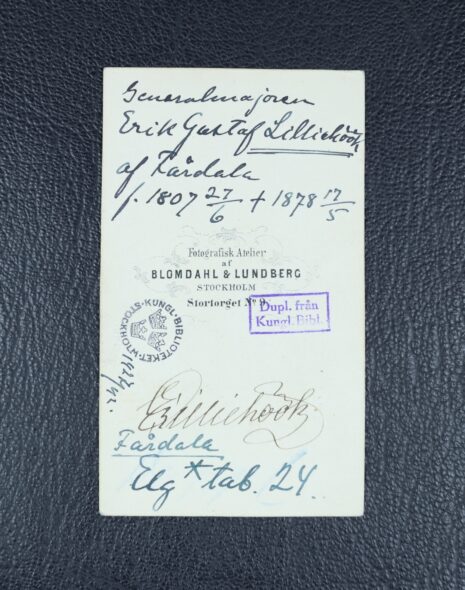 Generalmajoren
Erik Gustaf Lilliehöök
af Fårdala
f. 1807 27/6 † 1878 17/5
Fotografisk Atelier
af
BLOMDAHL & LUNDBERG
STOCKHOLM
Stortorget No 9.
Dupl. från
Kungl. Bibl.
KUNGL. BIBLIOTEKET STOCKHOLM
Lilliehöök
Fårdala
Elg * tab. 24.